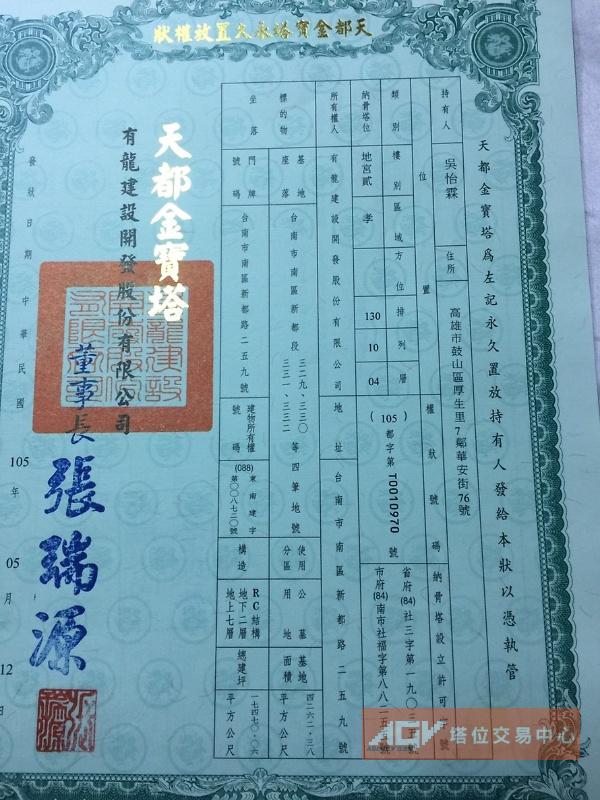 天都金寶塔永久置放權狀
天都金寶塔為左記永久置放持有人發給本狀以憑執管
持有人
吳怡霖
住所
高雄市鼓山區厚生里7鄰華安街76號
位置
權狀號碼
納骨塔設立許可字號
類別
樓別
區域
方位
排
列
層
納骨塔位
地宮貳
孝
130
10
04
(105)都字第T0010970號
省府(84)社三字第一九〇三
市府(84)南市社福字第八八二五
所有權人
有龍建設開發股份有限公司
地址
台南市南區新都路二五九號
標的物
坐落
基地座落
台南市南區新都段三二九、三三〇 三三一、三三二 等四筆地號
使用分區
公墓用地
基地面積
四二六二·三八平方公尺
門牌號碼
台南市南區新都路二五九號
建物所有權號碼
(088)東南建字第〇〇八七二〇號
構造
RC結構
地下二層
地上七層
總建坪
一七四七〇·〇六平方公尺
天都金寶塔
有龍建設開發股份有限公司
董事長 張瑞源
發狀日期 中華民國 105 年 05 月 12 日
ACV 塔位交易中心